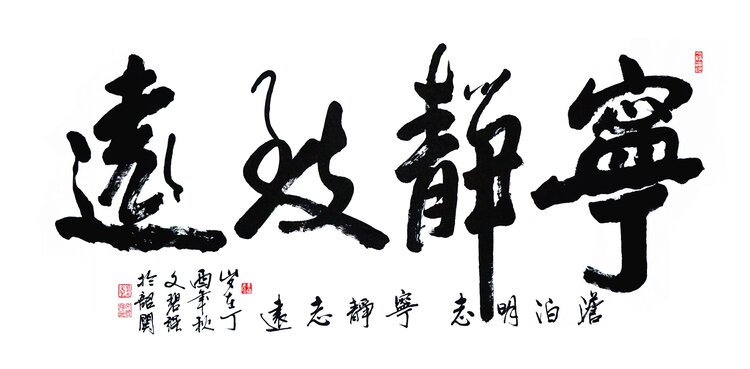 寧靜致遠
澹泊明志 寧靜志遠
岁在丁
酉年秋
文碧
於韶關